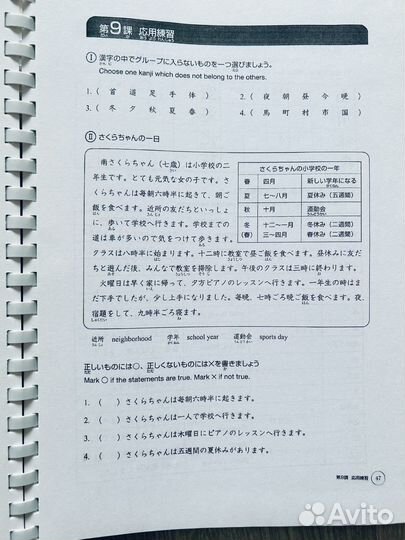 第9課 応用練習
Ⅰ 漢字の中でグループに入らないものを一つ選びましょう。
Choose one kanji which does not belong to the others.
1. ( 首 道 足 手 体 ) 2. ( 夜 朝 昼 今 晩 )
3. ( 冬 夕 秋 夏 春 ) 4. ( 馬 町 村 市 国 )
Ⅱ さくらちゃんの一日
南さくらちゃん（七歳）は小学校の二
年生です。とても元気な女の子です。さ
くらちゃんは毎朝六時半に起きて、朝ご
飯を食べます。近所の友だちといっしょ
に、歩いて学校へ行きます。学校までの
道は車が多いので気をつけて歩きます。
さくらちゃんの小学校の一年
春 四月 新しい学年になる
夏 七〜八月 夏休み（五週間）
秋 十月 運動会
冬 十二〜一月 冬休み（二週間）
(春) 三〜四月 春休み（二週間）
クラスは八時半に始まります。十二時に教室で昼ご飯を食べます。昼休みに友だ
ちと遊んだ後、みんなで教室を掃除します。午後のクラスは三時に終わります。
火曜日は早く家に帰って、夕方ピアノのレッスンへ行きます。一年生の時はま
だ下手でしたが、少し上手になりました。毎晩、七時ごろ晩ご飯を食べます。夜、
宿題をして、九時半ごろ寝ます。
近所 neighborhood 学年 school year 運動会 sports day
正しいものには○、正しくないものには×を書きましょう
Mark ○ if the statements are true. Mark × if not true.
1. ( ) さくらちゃんは毎朝六時半に起きます。
2. ( ) さくらちゃんは一人で学校へ行きます。
3. ( ) さくらちゃんは木曜日にピアノのレッスンへ行きます。
4. ( ) さくらちゃんは五週間の夏休みがあります。
第9課 応用練習 47
Avito